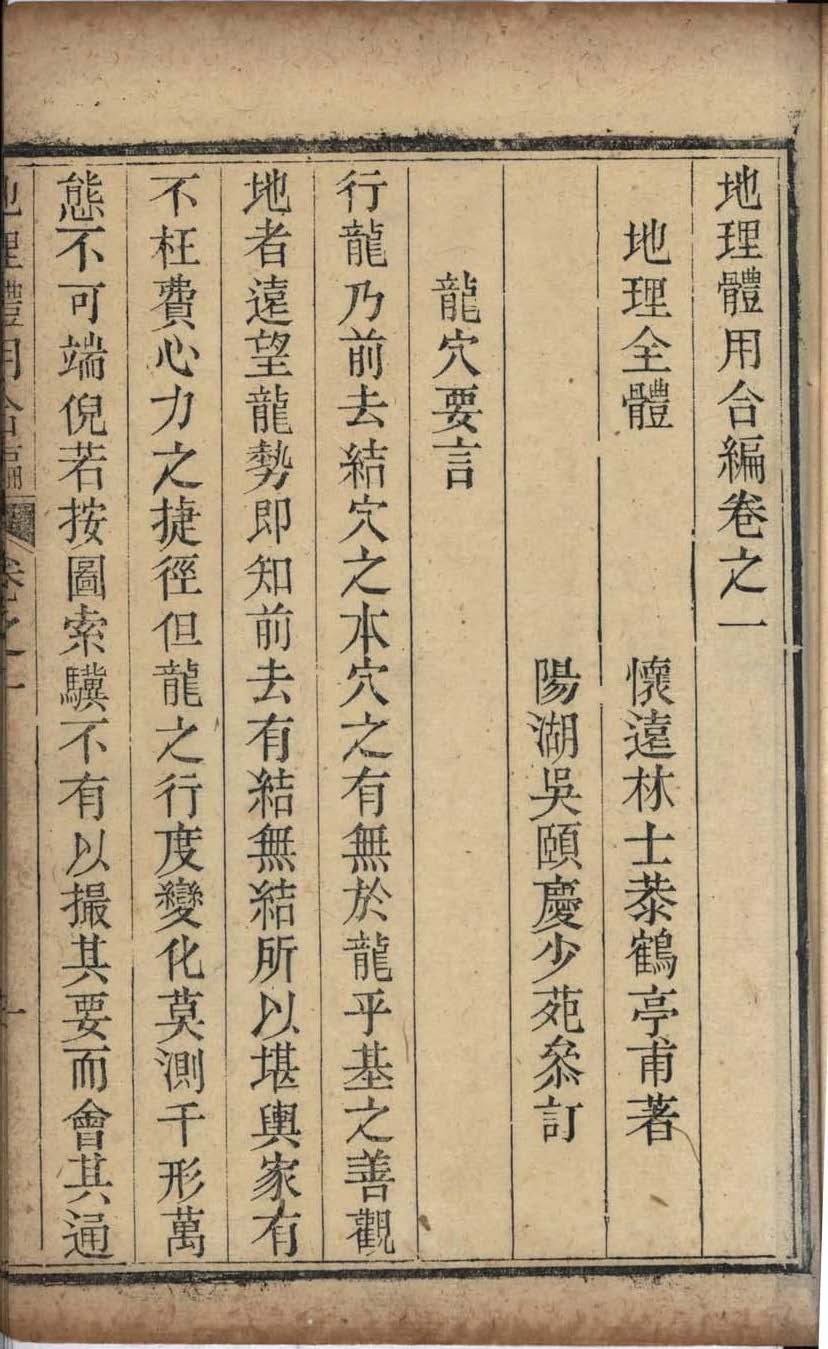 地理體用合編卷之一
地理全體 懷遠林士恭鶴亭甫著
陽湖吳頤慶少苑叅訂
龍穴要言
行龍乃前去結穴之本穴之有無於龍乎基之善觀
地者遠望龍勢即知前去有結無結所以堪輿家有
不枉費心力之捷徑但龍之行度變化莫測千形萬
態不可端倪若按圖索驥不有以撮其要而會其通
地理體用合編 卷之一 一